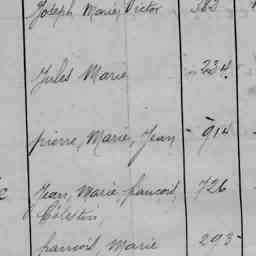 Joseph Marie, Victor 382
Jules Marie 234.
pierre, Marie, Jean - 914
Jean, Marie, francois, 726
Célestin,
francois, Marie 293-